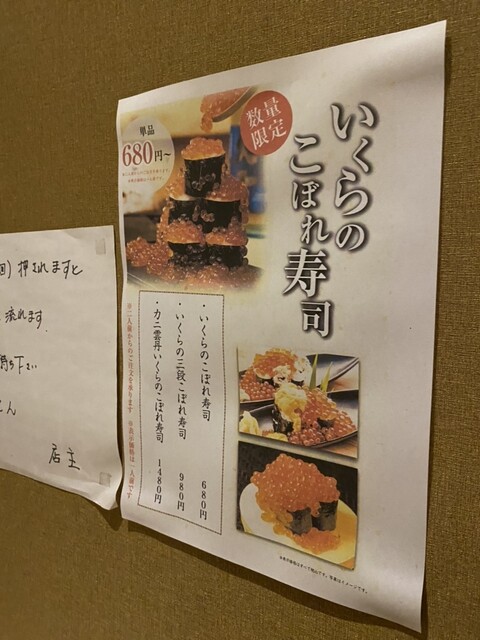 いくらの
こぼれ寿司
数量
限定
単品
680円～
・いくらのこぼれ寿司 680円
・いくらの三段こぼれ寿司 980円
・カニ雲丹いくらのこぼれ寿司 1480円
※二人前からのご注文を承ります ※表示価格は一人前です
押されますと
流れます
下さい
店主